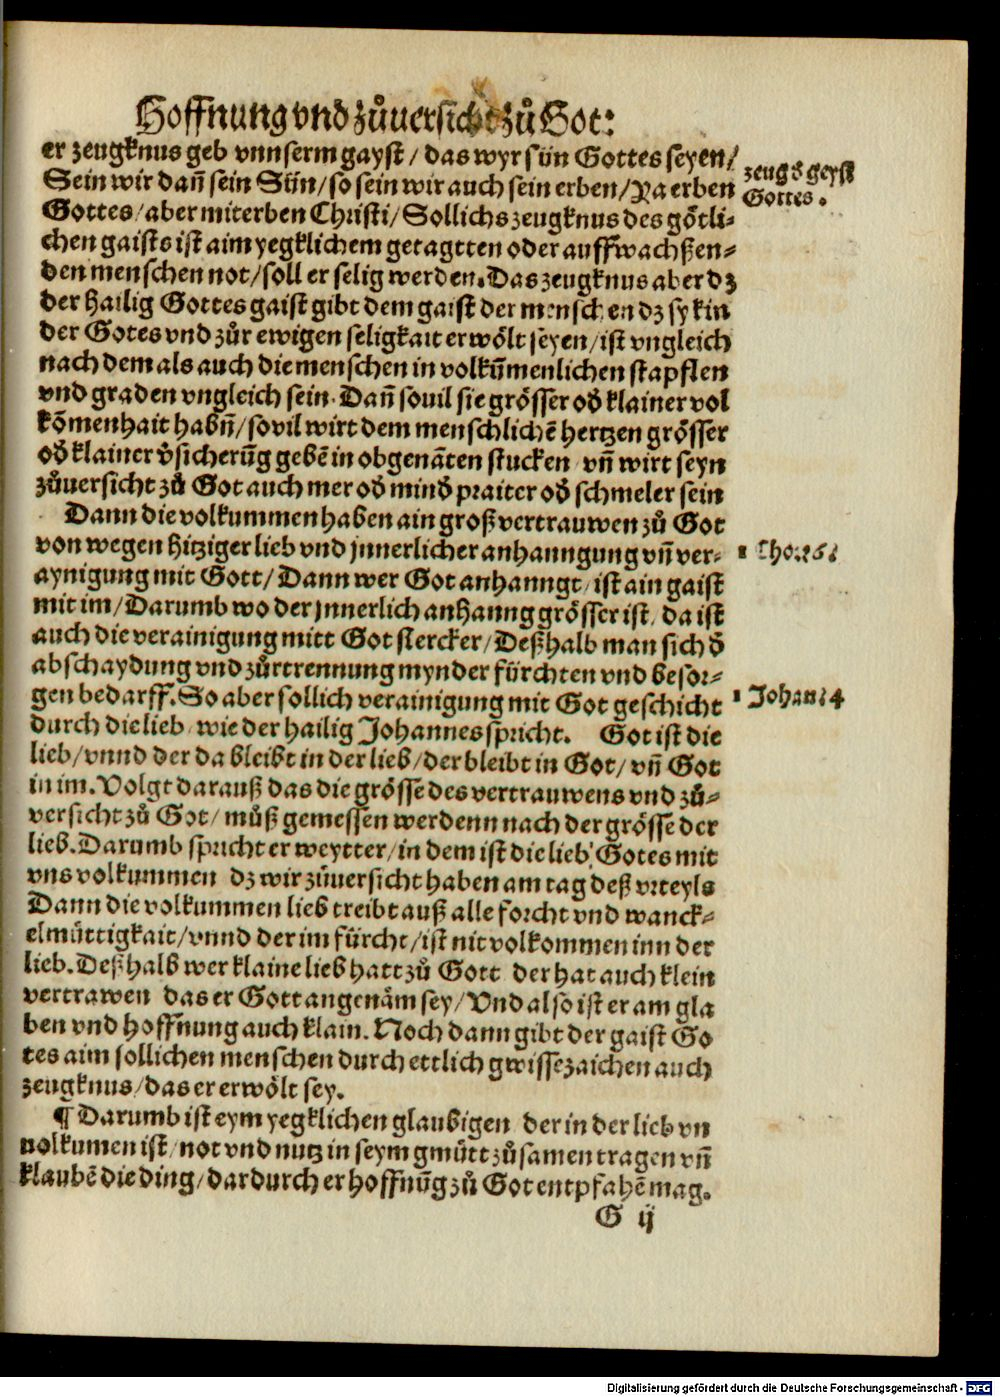 Hoffnung vnd zůuersicht zů Got:
er zeugknus geb vnnserm gayst / das wyr sün Gottes seyen /
zeugẜ geyst
Sein wir dañ sein Sün / so sein wir auch sein erben / Ya erben
Gottes.
Gottes / aber miterben Christi / Sollichs zeugknus des götli⸗
chen gaists ist aim yegklichem getagtten oder auffwachßen⸗
den menschen not / soll er selig werden. Das zeugknus aber dz
der hailig Gottes gaist gibt dem gaist der menschen dz sy kin
der Gotes vnd zůr ewigen seligkait erwölt seyen / ist vngleich
nach dem als auch die menschen in volkũmenlichen stapflen
vnd graden vngleich sein. Dañ souil sie grösser oď klainer vol
kõmenhait habñ / so vil wirt dem menschlichẽ hertzen grösser
oď klainer v̉sicherũg gebẽ in obgenãten stucken / vñ wirt seyn
zůuersicht zů Got auch mer oď minď praiter oď schmeler sein
Dann die volkummen haben ain groß vertrauwen zů Got
von wegen hitziger lieb vnd jnnerlicher anhanngung vñ ver⸗
1 Cho. 6
aynigung mit Gott / Dann wer Got anhanngt / ist ain gaist
mit im / Darumb wo der jnnerlich anhanng grösser ist / da ist
auch die verainigung mitt Got stercker / Deßhalb man sich ď
abschaydung vnd zůrtrennung mynder fürchten vnd besor⸗
gen bedarff. So aber sollich verainigung mit Got geschicht
1 Johan 4
durch die lieb / wie der hailig Johannes spricht. Got ist die
lieb / vnnd der da bleibt in der lieb / der bleibt in Got / vñ Got
in im. Volgt darauß das die grösse des vertrauwens vnd zů⸗
versicht zů Got / můß gemessen werdenn nach der grösse der
lieb. Darumb spricht er weytter / in dem ist die lieb Gotes mit
vns volkummen dz wir zůuersicht haben am tag deß vrteyls
Dann die volkummen lieb treibt auß alle forcht vnd wanck⸗
elmüttigkait / vnnd der im fürcht / ist nit volkommen inn der
lieb. Deßhalb wer klaine lieb hatt zů Gott der hat auch klein
vertrawen das er Gott angenäm sey / Vnd also ist er am gla
ben vnd hoffnung auch klain. Noch dann gibt der gaist Go
tes aim sollichen menschen durch ettlich gwisse zaichen auch
zeugknus / das er erwölt sey.
¶ Darumb ist eym yegklichen glaubigen der in der lieb vn
uolkumen ist / not vnd nutz in seym gmütt zůsamen tragen vñ
klaubẽ die ding / dardurch er hoffnũg zů Got entpfahẽ mag.
G ij
Digitalisierung gefördert durch die Deutsche Forschungsgemeinschaft - DFG